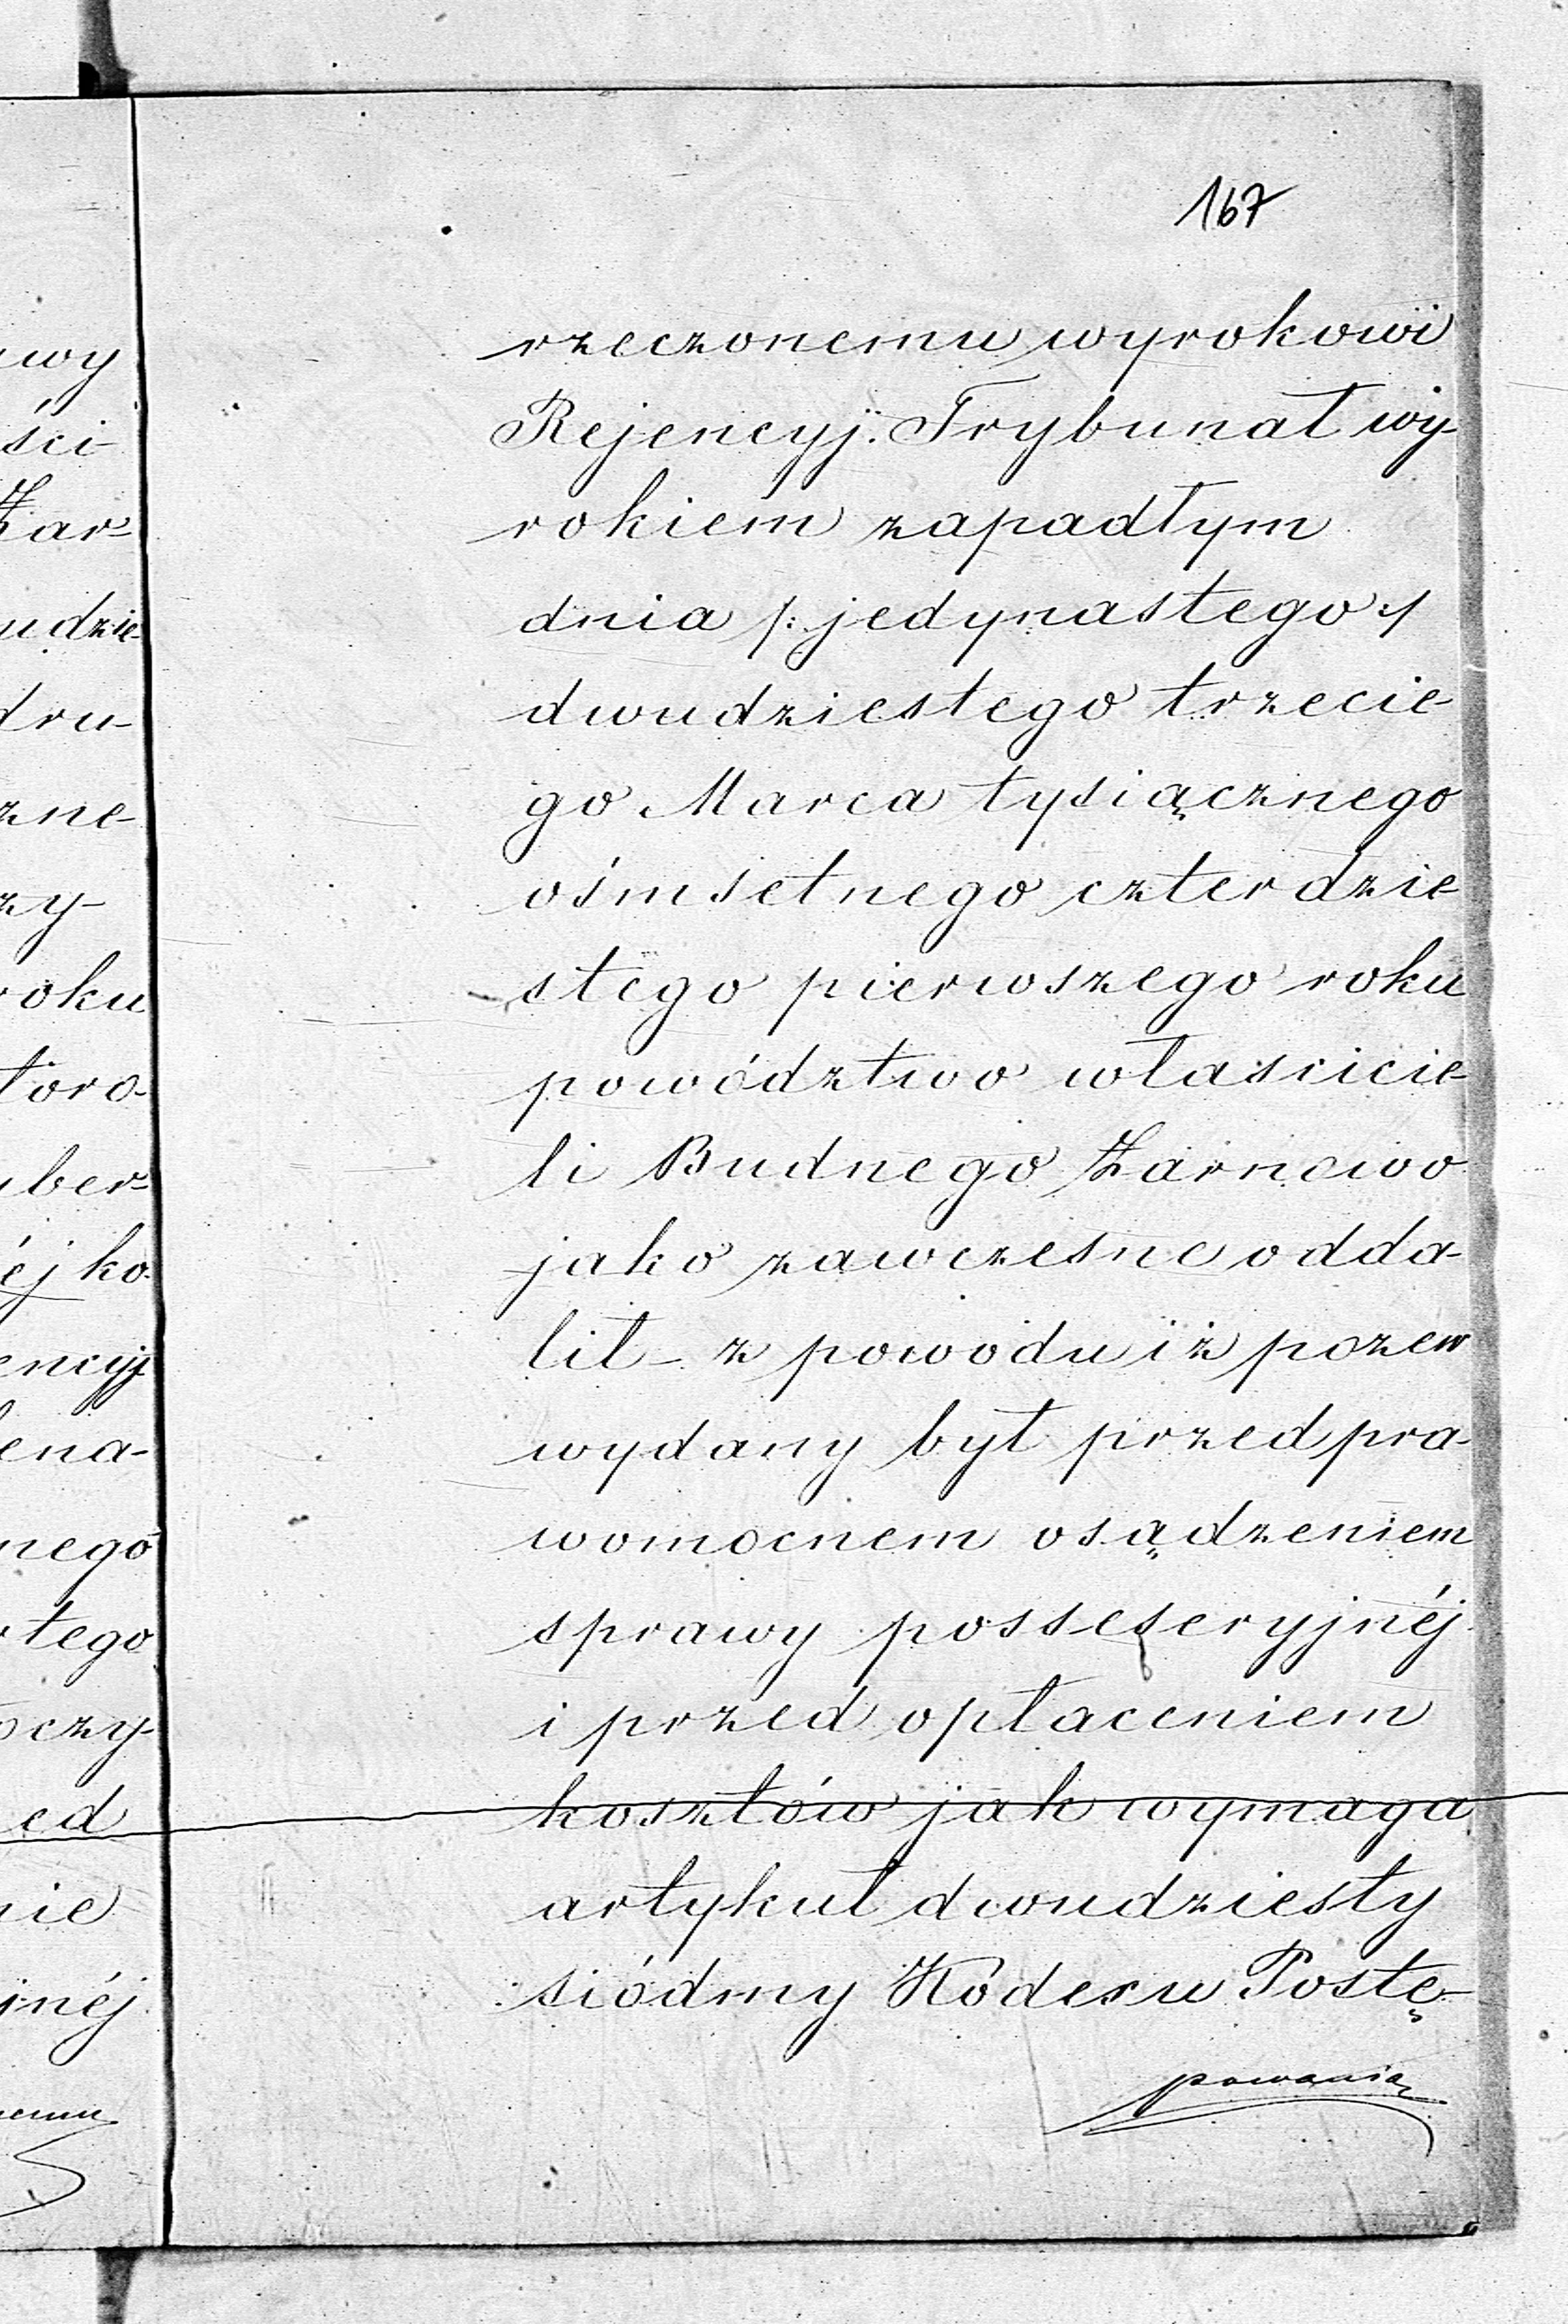 167
rzeczonemu wyrokowi
Rejencyj. Trybunał wy-
rokiem zapadłym
dnia /: jedynastego :/
dwudziestego trzecie-
go Marca tysiącznego
ośmsetnego czterdzie
stego pierwszego roku
powództwo własciciel-
li Budnego Żarnowo
jako zawczesne odda-
lił - z powodu iż pozew
wydany był przed pra-
womocnem osądzeniem
sprawy possesseryjnéj
i przed opłaceniem
kosztów jak wymaga
artykuł dwudziesty
siódmy Kodexu Postę-
powania
wy
ści-
Żar-
udzie
dru-
zne-
zy-
roku
toro-
ber-
éj ko-
encyj
ena-
nego
rtego
oczy-
ed
nie
jnéj
nemu